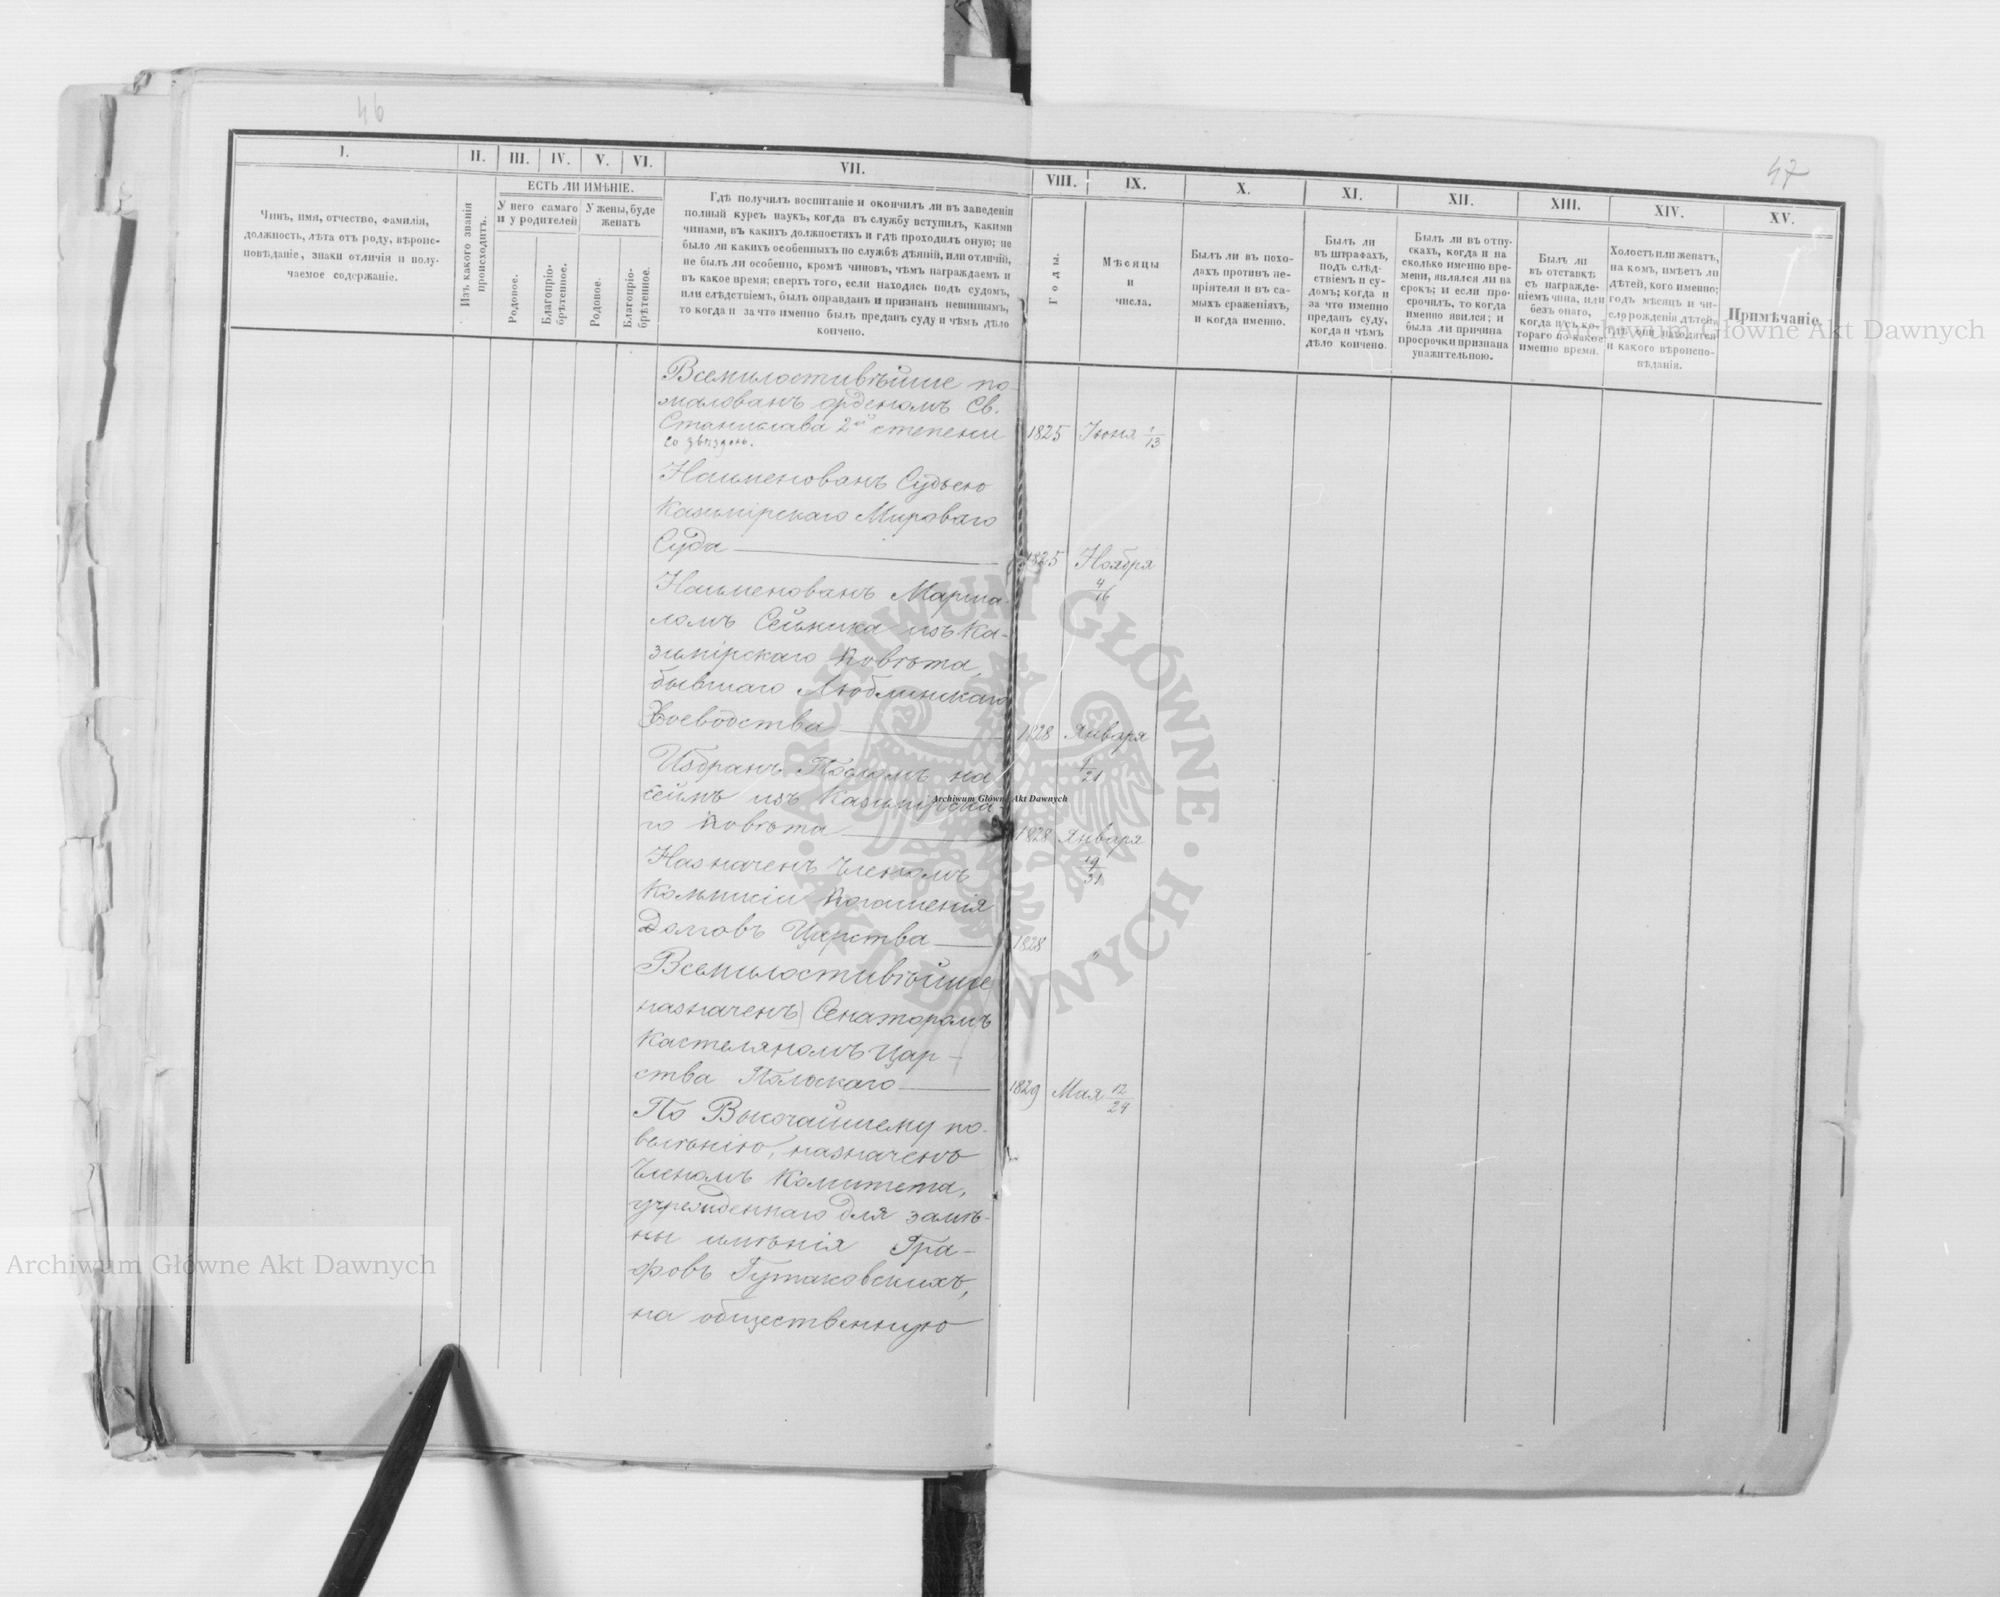 46
47
I.
II.
III.
IV.
V.
VI.
VII.
VIII.
IX.
X.
XI.
XII.
XIII.
XIV.
XV.
Чинъ, имя, отчество, фамилія,
должность, лѣта отъ роду, вѣроис-
повѣданіе, знаки отличія и полу-
чаемое содержаніе.
Изъ какого званія
происходитъ.
ЕСТЬ ЛИ ИМѢНІЕ.
У него самаго
и у родителей
У жены, буде
женатъ
Родовое.
Благопріо-
брѣтенное.
Родовое.
Благопріо-
брѣтенное.
Гдѣ получилъ воспитаніе и окончилъ ли въ заведеніи
полный курсъ наукъ, когда въ службу вступилъ, какими
чинами, въ какихъ должностяхъ и гдѣ проходилъ оную; не
было ли какихъ особенныхъ по службѣ дѣяній, или отличій,
не былъ ли особенно, кромѣ чиновъ, чѣмъ награждаемъ и
въ какое время; сверхъ того, если находясь подъ судомъ,
или слѣдствіемъ, былъ оправданъ и признанъ невиннымъ,
то когда и за что именно былъ преданъ суду и чѣмъ дѣло
кончено.
Годы.
Мѣсяцы
и
числа.
Былъ ли въ похо-
дахъ противъ не-
пріятеля и въ са-
мыхъ сраженіяхъ,
и когда именно.
Былъ ли
въ штрафахъ,
подъ слѣд-
ствіемъ и су-
домъ; когда и
за что именно
преданъ суду,
когда и чѣмъ
дѣло кончено.
Былъ ли въ отпу-
скахъ, когда и на
сколько именно вре-
мени, являлся ли на
срокъ; и если про-
срочилъ, то когда
именно явился; и
была ли причина
просрочки признана
уважительною.
Былъ ли
въ отставкѣ
съ награжде-
ніемъ чина, или
безъ онаго,
когда и съ ко-
тораго по какое
именно время.
Холостъ или женатъ,
на комъ, имѣетъ ли
дѣтей, кого именно;
годъ мѣсяцъ и чи-
сло рожденія дѣтей,
гдѣ они находятся
и какого вѣроиспо-
вѣданія.
Примѣчаніе.
Archiwum Główne Akt Dawnych
Всемилостивѣйше по-
жалованъ орденомъ Св.
Станислава 2й степени
со звѣздою.
1825 Іюня 1/13
Наименованъ Судьею
Казимірскаго Мироваго
Суда
1825 Ноября 4/16
Наименованъ Марша-
ломъ Сеймика изъ Ка-
зимірскаго Повѣта
бывшаго Люблинскаго
Воеводства
1828 Января 9/21
Избранъ Посломъ на
сеймъ изъ Казимірска-
го Повѣта
1828 Января 19/31
Назначенъ Членомъ
Коммисіи Погашенія
Долговъ Царства
1828 "
Всемилостивѣйше
назначенъ Сенаторомъ
Кастеляномъ Цар-
ства Польскаго
1829 Мая 12/24
По Высочайшему по-
велѣнію, назначенъ
Членомъ Комитета,
учрежденнаго для замѣ-
ны имѣнія Гра-
фовъ Гутаковскихъ,
на общественную
Archiwum Główne Akt Dawnych
ARCHIWUM GŁÓWNE AKT DAWNYCH
Archiwum Główne Akt Dawnych